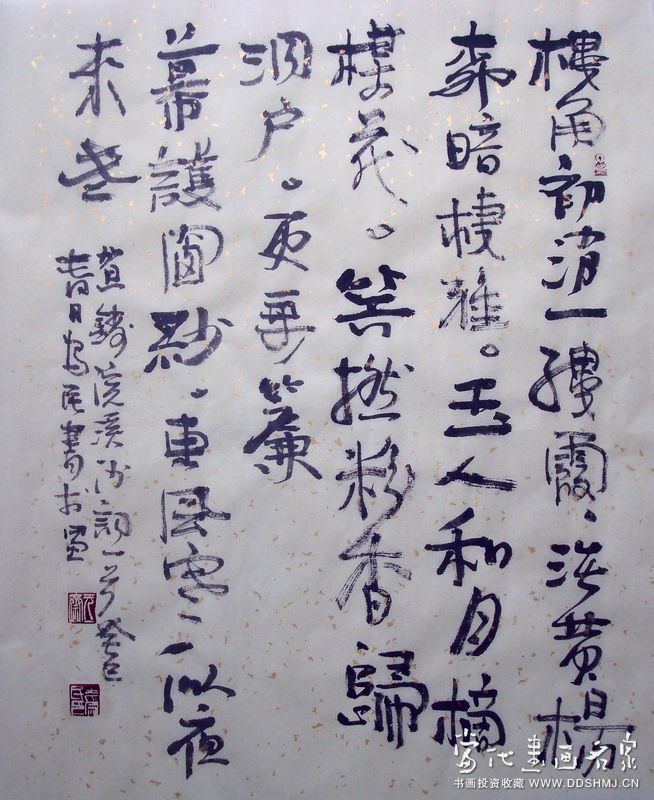 樓角初消一縷霞、淡黄楊
柳暗棲雅。玉人和月摘
楳花。笑撚粉香歸
洞户。更垂簾
幕護窗紗。東風寒、一似夜
来些
賀鑄浣溪沙詞一首癸巳
春日 民書於
当代書画名家
书画投资收藏 WWW.DDSHMJ.CN